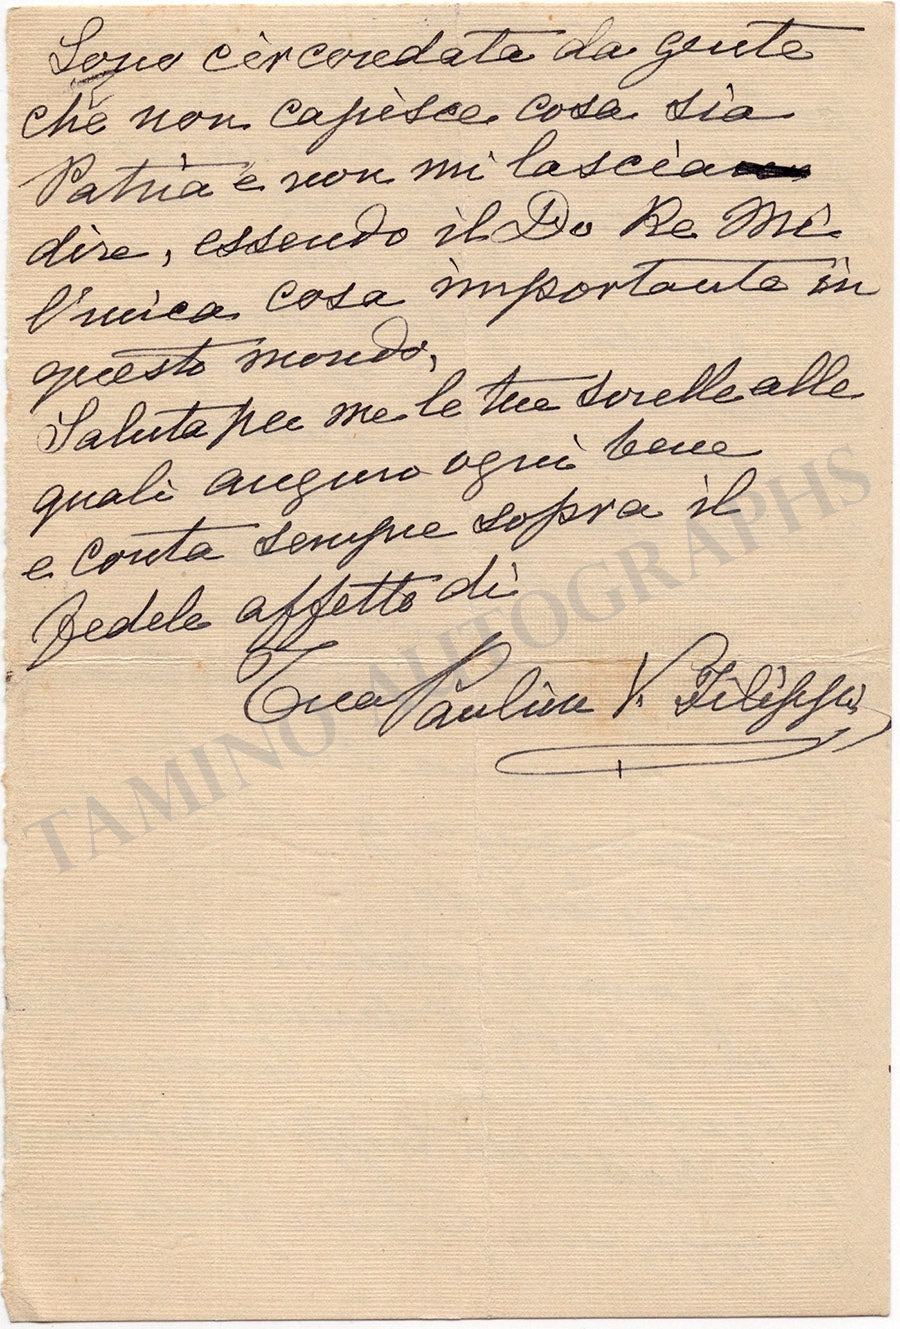 Sono circondata da gente
che non capisce cosa sia
Patria e non mi lascia
dire, essendo il Do Re Mi
l'unica cosa importante in
questo mondo,
Saluta per me le tue sorelle alle
quali auguro ogni bene
e conta sempre sopra il
fedele affetto di
Tua Pauline V. Filippi
TAMINO AUTOGRAPHS